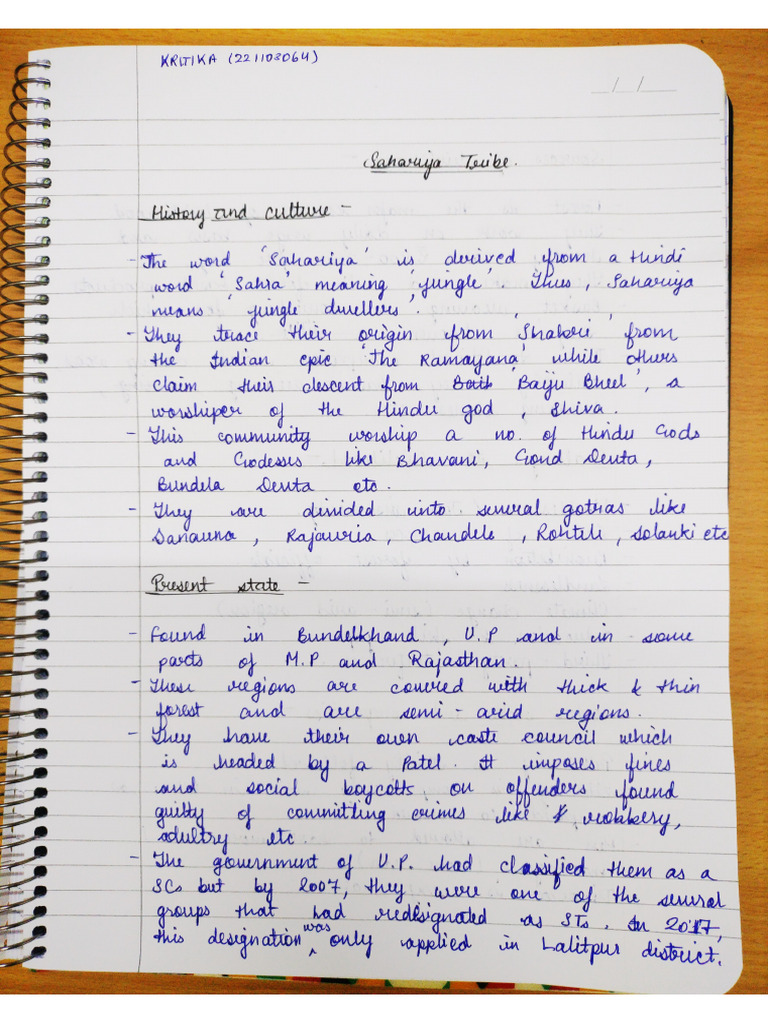 KRITIKA (221103064)
__/__/____
Sahariya Tribe.
History and culture -
- The word 'Sahariya' is derived from a Hindi
word 'Sahra' meaning 'jungle' Thus, Sahariya
means 'jungle dwellers'.
- They trace their origin from 'Shabri' from
the Indian epic 'The Ramayana' while others
claim their descent from 'Baiju Bheel', a
worshiper of the Hindu god, Shiva.
- This community worship a no. of Hindu Gods
and Godesses like Bhavani, Gond Devta,
Bundela Devta etc.
- They are divided into several gotras like
Sanauna, Rajauria, Chandele, Rohteli, Solanki etc
Present state -
- Found in Bundelkhand, U.P and in some
parts of M.P and Rajasthan.
- These regions are covered with thick & thin
forest and are semi-arid regions.
- They have their own caste council which
is headed by a Patel. It imposes fines
and social boycotts on offenders found
guilty of committing crimes like robbery,
adultry etc.
- The government of U.P. had classified them as a
SCs but by 2007, they were one of the several
groups that had redisignated as STs. In 2017,
this designation was only applied in Lalitpur district.